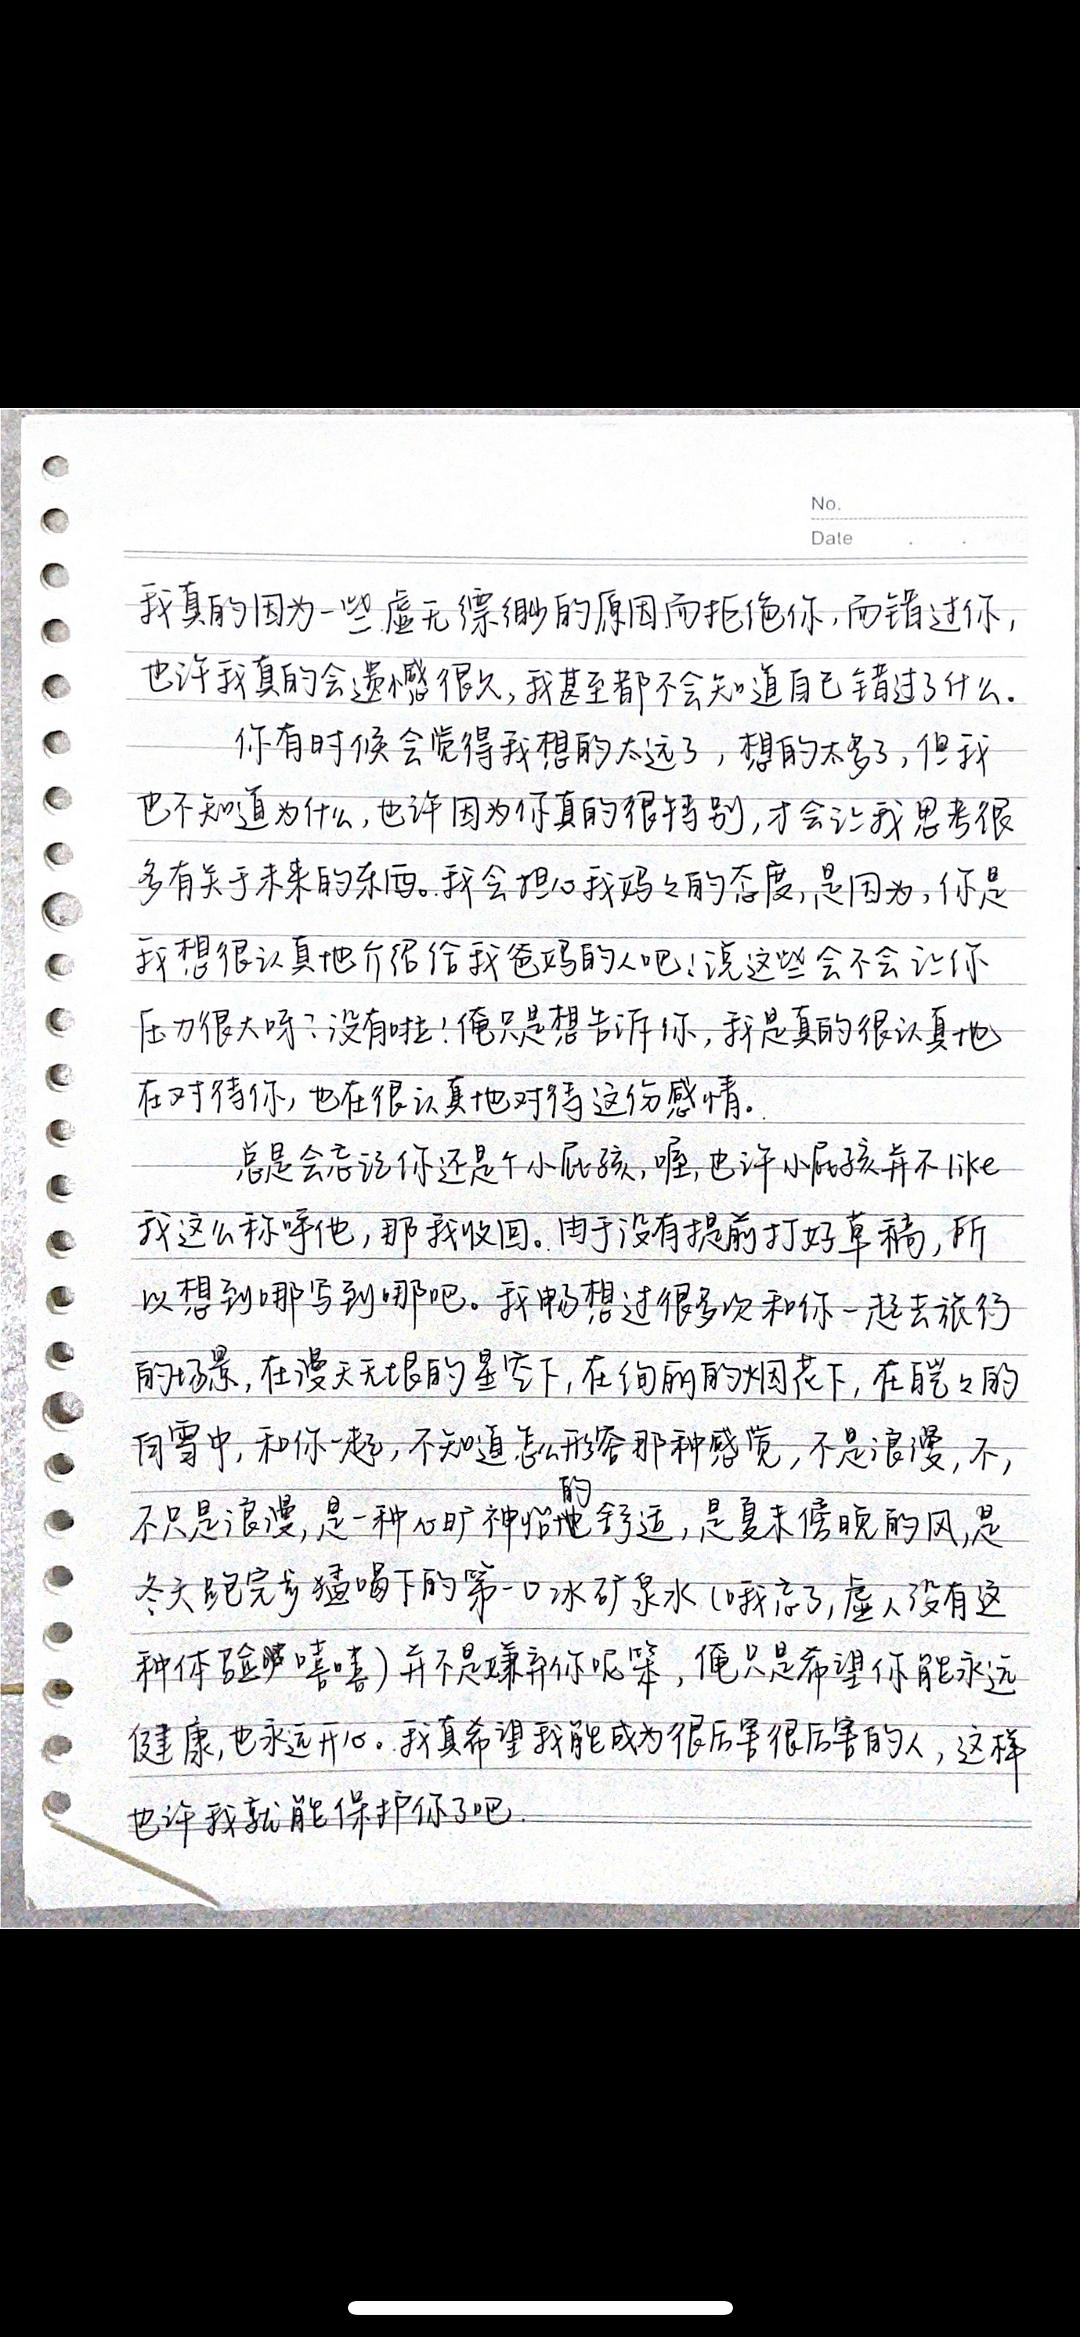 No.
Date
我真的因为一些虚无缥缈的原因而拒绝你,而错过你,
也许我真的会遗憾很久,我甚至都不会知道自己错过了什么.
你有时候会觉得我想的太远了,想的太多了,但我
也不知道为什么,也许因为你真的很特别,才会让我思考很
多有关于未来的东西。我会担心我妈々的态度,是因为,你是
我想很认真地介绍给我爸妈的人吧!说这些会不会让你
压力很大呀?没有啦!俺只是想告诉你,我是真的很认真地
在对待你,也在很认真地对待这份感情。
总是会忘记你还是个小屁孩,喔,也许小屁孩并不like
我这么称呼他,那我收回。由于没有提前打好草稿,所
以想到哪写到哪吧。我畅想过很多次和你一起去旅行
的场景,在漫天无垠的星空下,在绚丽的烟花下,在皑々的
白雪中,和你一起,不知道怎么形容那种感觉,不是浪漫,不,
不只是浪漫,是一种心旷神怡的舒适,是夏末傍晚的风,是
冬天跑完步猛喝下的第一口冰矿泉水(哦忘了,虚人没有这
种体验嘻嘻)并不是嫌弃你呢笨,俺只是希望你能永远
健康,也永远开心。我真希望我能成为很厉害很厉害的人,这样
也许我就能保护你了吧.